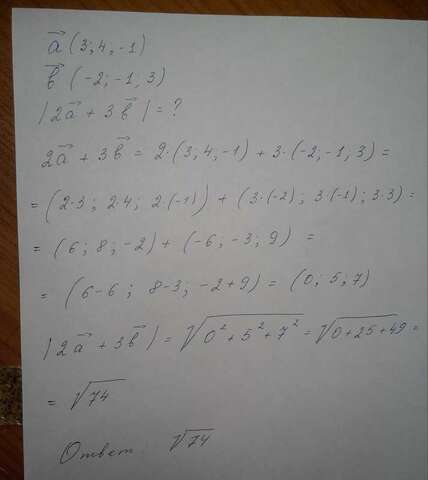 a⃗ (3; 4, -1)
b⃗ (-2; -1, 3)
|2a⃗ + 3b⃗| = ?
2a⃗ + 3b⃗ = 2·(3; 4; -1) + 3·(-2; -1, 3) =
= (2·3; 2·4; 2·(-1)) + (3·(-2); 3·(-1); 3·3) =
= (6; 8; -2) + (-6; -3; 9) =
= (6-6; 8-3; -2+9) = (0; 5; 7)
|2a⃗ + 3b⃗| = √(0² + 5² + 7²) = √(0+25+49) =
= √74
Ответ √74